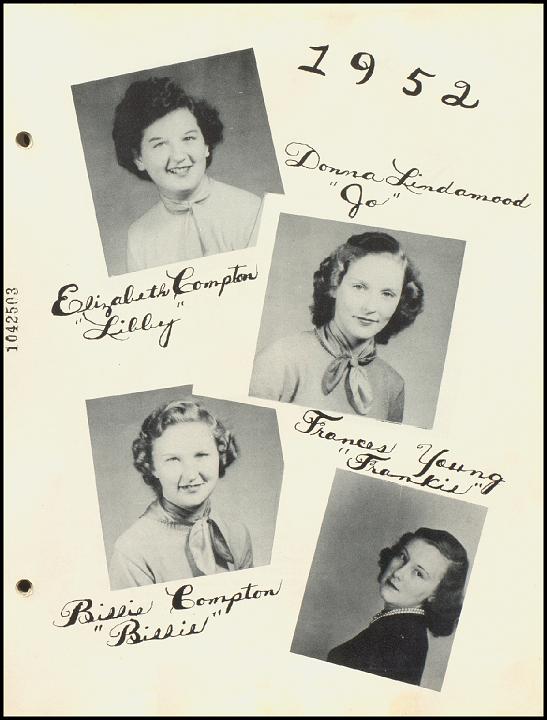 1952
Donna Lindamood
"Jo"
Elizabeth Compton
"Libby"
Frances Young
"Frankie"
Billie Compton
"Billie"
1042503